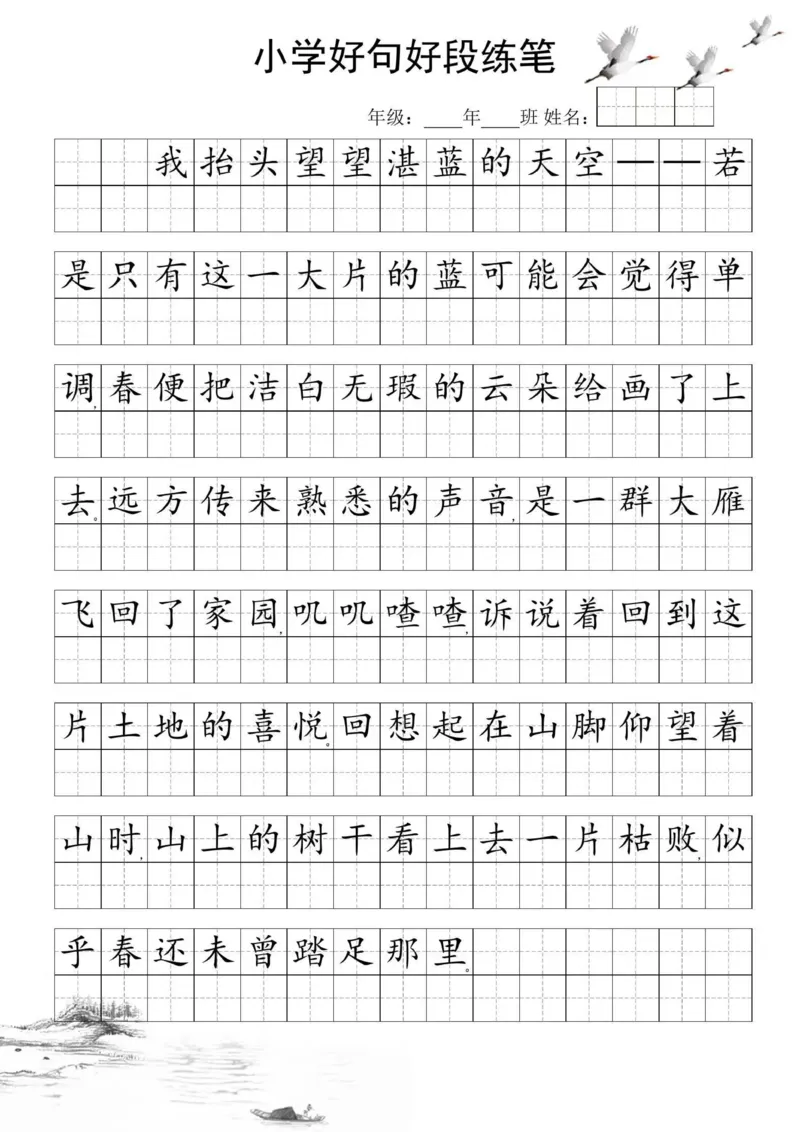 小学好句好段练笔
年级：____年____班 姓名：
我抬头望望湛蓝的天空——若
是只有这一大片的蓝可能会觉得单
调，春便把洁白无瑕的云朵给画了上
去。远方传来熟悉的声音，是一群大雁
飞回了家园，叽叽喳喳，诉说着回到这
片土地的喜悦。回想起在山脚仰望着
山时，山上的树干看上去一片枯败，似
乎春还未曾踏足那里。